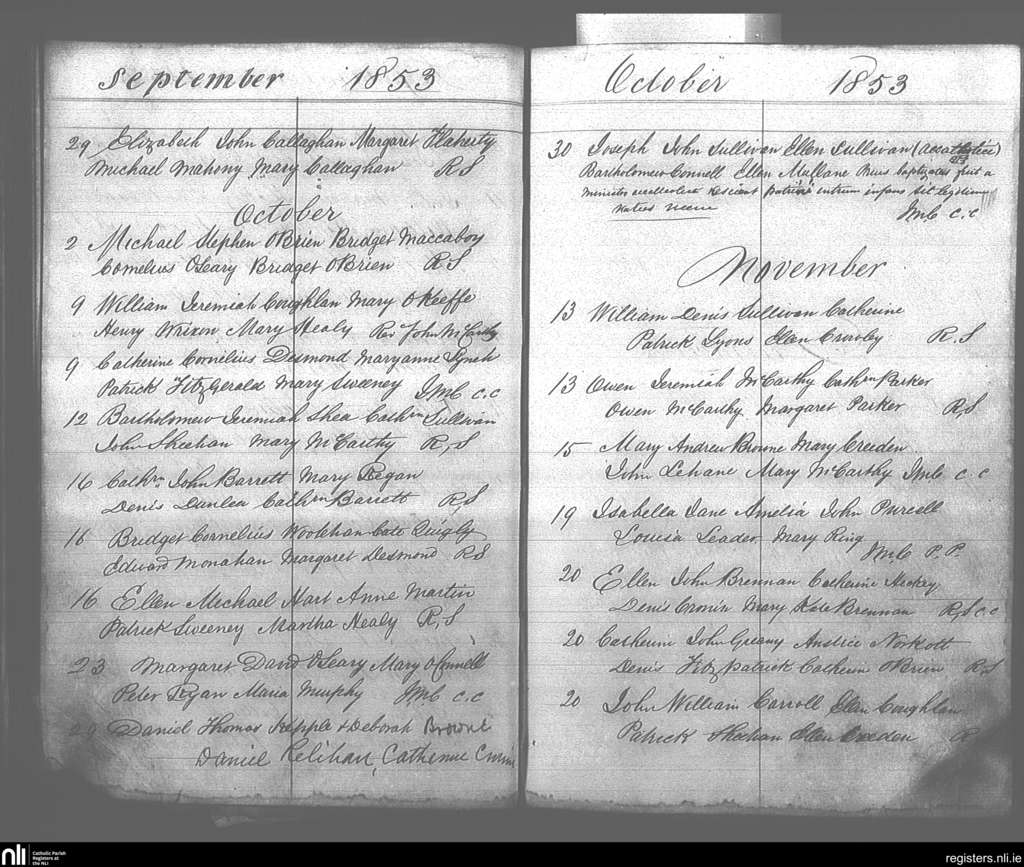 September 1853
29 Elizabeth John Callaghan Margaret Flaherty
Michael Mahony Mary Callaghan R S
October
2 Michael Stephen OBrien Bridget Maccaboy
Cornelius OLeary Bridget OBrien R S
9 William Jeremiah Coughlan Mary OKeeffe
Henry Wrixon Mary Healy Rev John McCarthy
9 Catherine Cornelius Desmond Maryanne Lynch
Patrick FitzGerald Mary Sweeney JMC c.c
12 Bartholomew Jeremiah Shea Cathrn Sullivan
John Sheehan Mary McCarthy R,S
16 Cathrn John Barrett Mary Regan
Denis Danlea Cathrn Barrett R,S
16 Bridget Cornelius Cate Quigly
Edward Monahan Margaret Desmond R S
16 Ellen Michael Hart Anne Martin
Patrick Sweeney Martha Healy R, S
23 Margaret David OLeary Mary OConnell
Peter Ryan Maria Murphy JMC c.c
29 Daniel Thomas Kepple + Deborah Browne
Daniel Relihan, Catherine
October 1853
30 Joseph John Sullivan Ellen Sullivan
Bartholomew Connell Ellen Mullane baptizatus fuit a
infans sit
JMC c.c
November
13 William Denis Sullivan Catherine
Patrick Lyons Ellen Crowley R.S
13 Owen Jeremiah McCarthy Cathrn Parker
Owen McCarthy Margaret Parker R,S
15 Mary Andrew Browne Mary Creeden
John Lehane Mary McCarthy JMC c.c
19 Isabella Jane Amelia John Purcell
Louisa Leader Mary Ring
JMC P.P.
20 Ellen John Brennan Catherine Hickey
Denis Cronin Mary Kate Brennan R,S c.c
20 Catherine John Greany Norkott
Denis Fitzpatrick Catherine OBrien R.S
20 John William Carroll Ellen Coughlan
Patrick Sheehan Ellen Creeden R
nli
Catholic Parish
Registers at
the NLI
registers.nli.ie